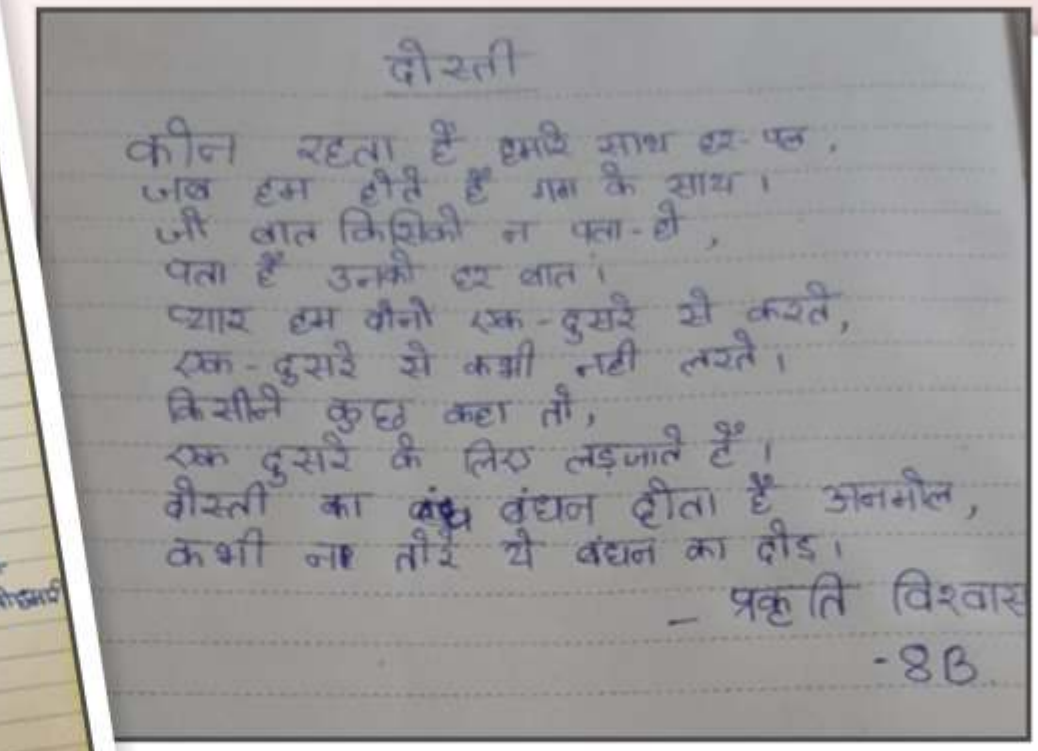 दोस्ती
कौन रहता है हमारे साथ हर-पल,
जब हम होते हैं गम के साथ।
जो बात किसिको न पता-हो,
पता हैं उनको हर बात।
प्यार हम दोनो एक-दुसरे से करते,
एक-दुसरे से कभी नही लरते।
किसीने कुछ कहा तो,
एक दुसरे के लिए लड़जाते हैं।
दोस्ती का बंधन होता है अनमोल,
कभी ना तोरे ये बंधन का दोड़।
– प्रकृति विश्वास
-8B